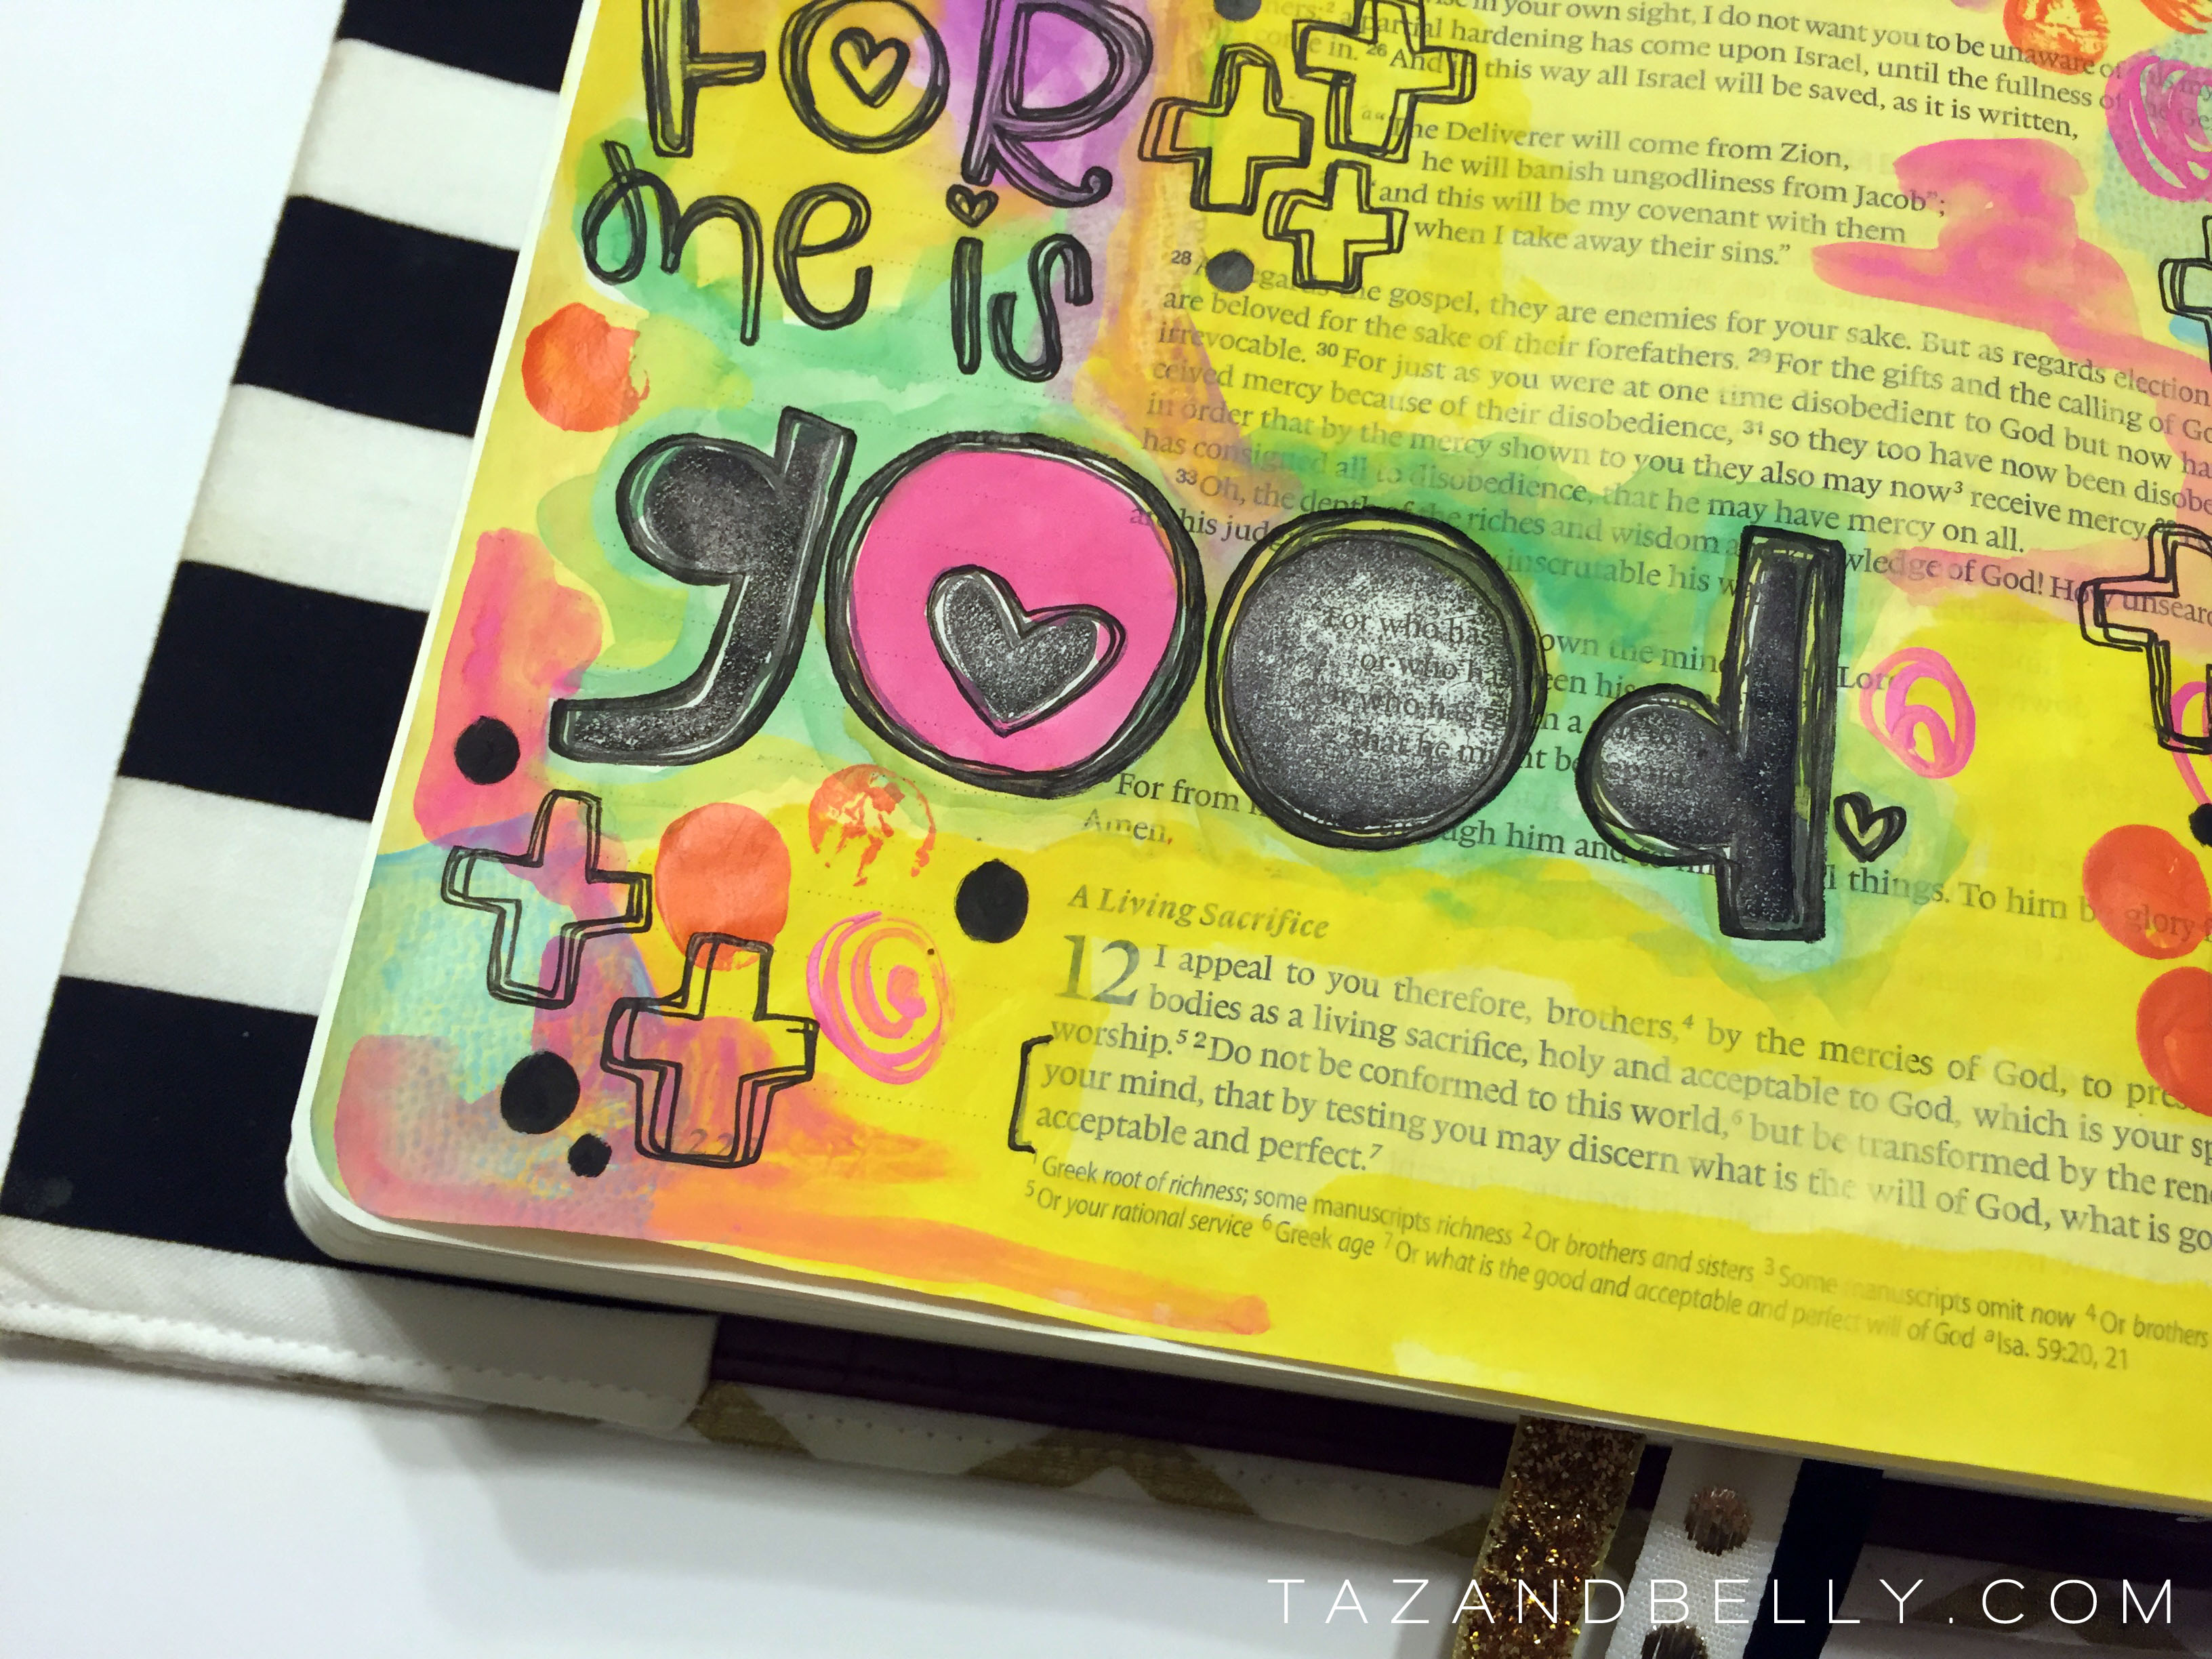 FOR
me is
good
in your own sight, I do not want you to be unaware of
a partial hardening has come upon Israel, until the fullness of
come in. 26 And in this way all Israel will be saved, as it is written,
a "The Deliverer will come from Zion,
he will banish ungodliness from Jacob";
"and this will be my covenant with them
when I take away their sins."
28 As regards the gospel, they are enemies for your sake. But as regards election,
are beloved for the sake of their forefathers. 29 For the gifts and the calling of
irrevocable. 30 For just as you were at one time disobedient to God but now
ceived mercy because of their disobedience, 31 so they too have now been
in order that by the mercy shown to you they also may now3 receive mercy.
has consigned all to disobedience, that he may have mercy on all.
33 Oh, the depth of the riches and wisdom and knowledge of God! How
are his judg inscrutable his
For who has known the mind Lord
or who has been his
Or who has a
that he might be repaid
For from through him and to him all things. To him be glory
Amen.
A Living Sacrifice
12 I appeal to you therefore, brothers,4 by the mercies of God, to
bodies as a living sacrifice, holy and acceptable to God, which is your
worship.5 2 Do not be conformed to this world,6 but be transformed by the
your mind, that by testing you may discern what is the will of God, what is
acceptable and perfect.7
1 Greek root of richness; some manuscripts richness 2 Or brothers and sisters 3 Some manuscripts omit now 4 Or brothers
5 Or your rational service 6 Greek age 7 Or what is the good and acceptable and perfect will of God a Isa. 59:20, 21
TAZANDBELLY.COM